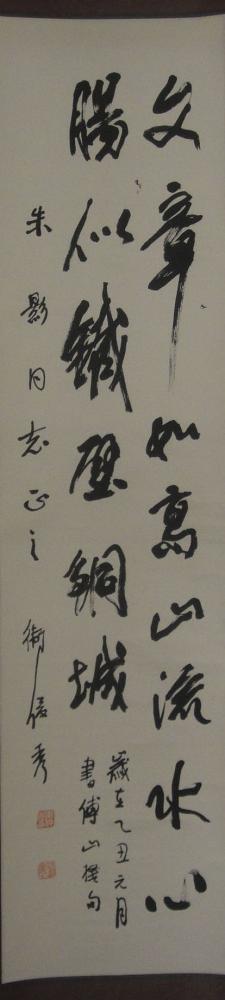 文章如高山流水心
腸似鐵壁銅城
歲在乙丑元月
書傅山撰句
朱影同志正之 衛俊秀